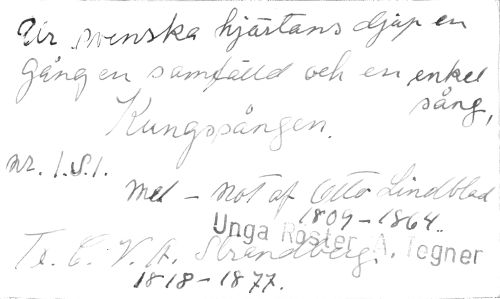 Ur svenska hjärtans djup en
gång en samfälld och en enkel
sång,
Kungssången.
nr. 1.S.1.
mel - not af Otto Lindblad
1809-1864.
Unga Röster A. Tegner
Te. C. V. A. Strandberg.
1818-1877.